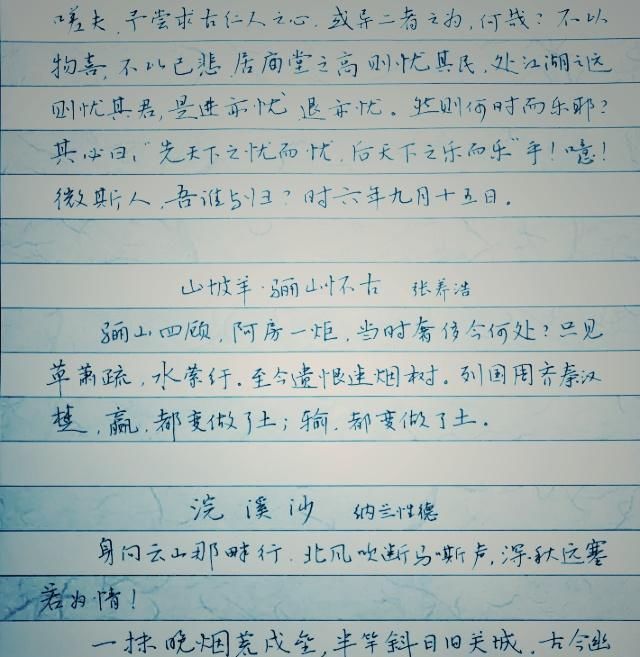 嗟夫,予尝求古仁人之心,或异二者之为,何哉?不以
物喜,不以己悲,居庙堂之高则忧其民,处江湖之远
则忧其君,是进亦忧 退亦忧。然则何时而乐耶?
其必曰,“先天下之忧而忧,后天下之乐而乐”乎!噫!
微斯人,吾谁与归?时六年九月十五日。
山坡羊·骊山怀古 张养浩
骊山四顾,阿房一炬,当时奢侈今何处?只见
草萧疏,水萦纡。至今遗恨迷烟树。列国周齐秦汉
楚,赢,都变做了土;输,都变做了土。
浣溪沙 纳兰性德
身向云山那畔行.北风吹断马嘶声,深秋远塞
若为情!
一抹晚烟荒戍垒,半竿斜日旧关城.古今幽